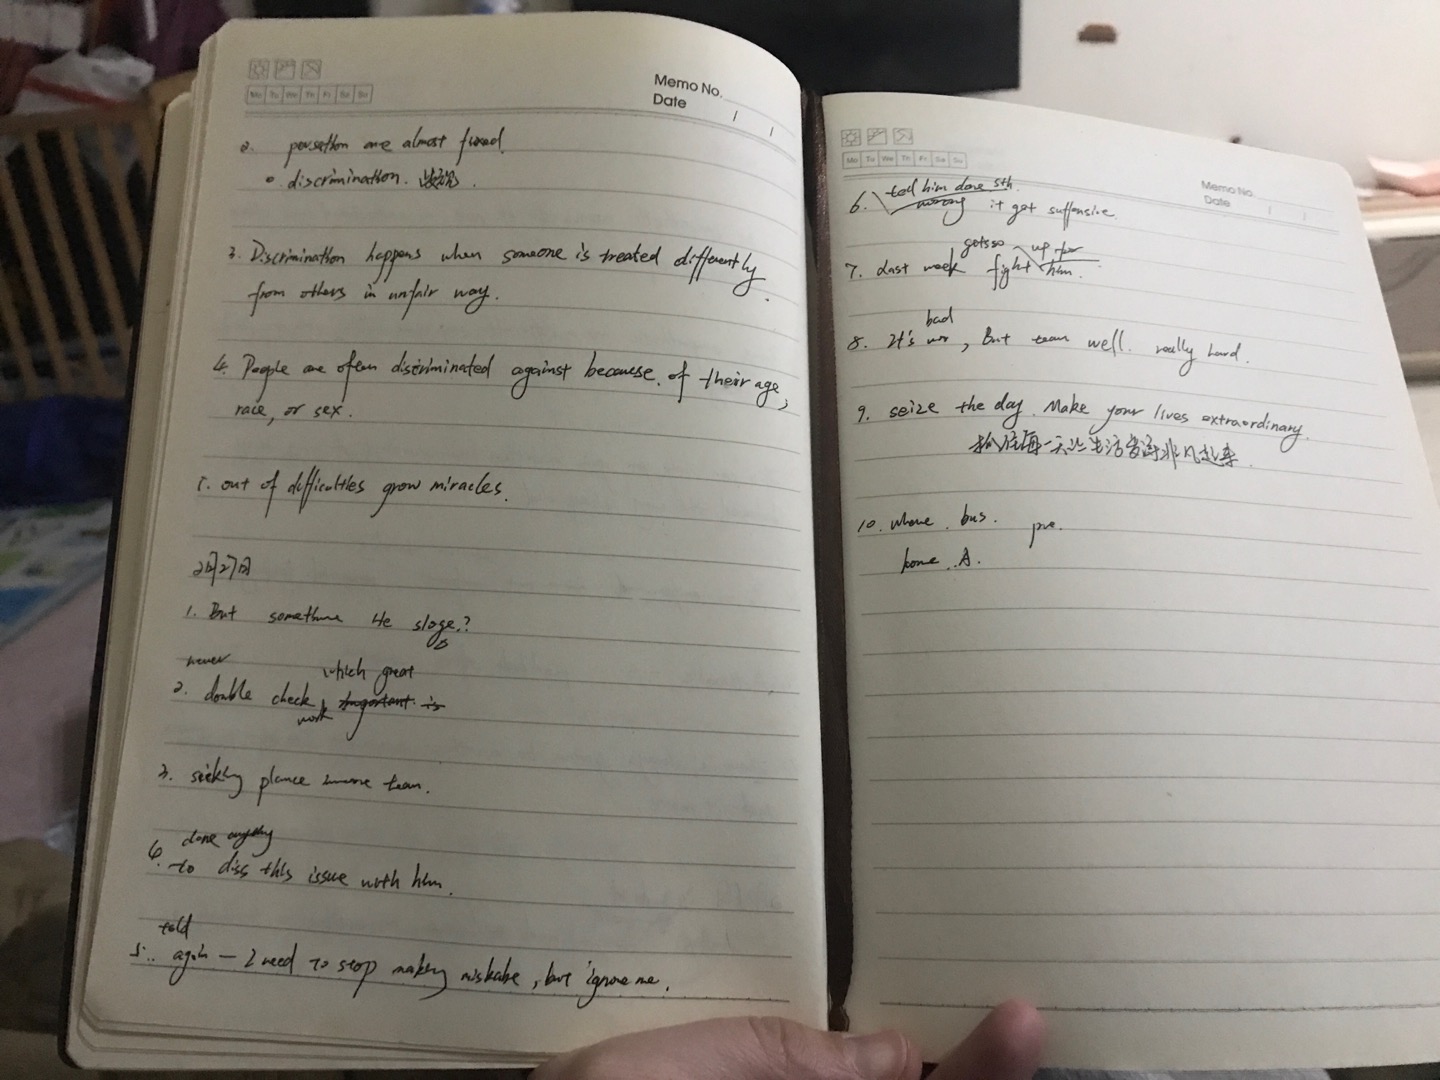 Memo No.
Date
Mo Tu We Th Fr Sa Su
2. are almost fixed.
discrimination. 歧视.
3. Discrimination happens when someone is treated differently
from others in unfair way.
4. People are often discriminated against because. of their age,
race, or sex.
5. out of difficulties grow miracles.
2月27日
1. But He
never
which great
2. double check, important is
work
3. team.
done
4. to diss this issue with him.
told
5.. again — I need to stop making miskabe, but ignore me.
Memo No.
Date
Mo Tu We Th Fr Sa Su
him done sth.
6. wrong it get
up for
7. Last week fight him.
bad
8. It's , But team well. really hard.
9. seize the day. Make your lives extraordinary.
抓住每一天让生活变得非凡起来.
10. where. bus.
home. A.